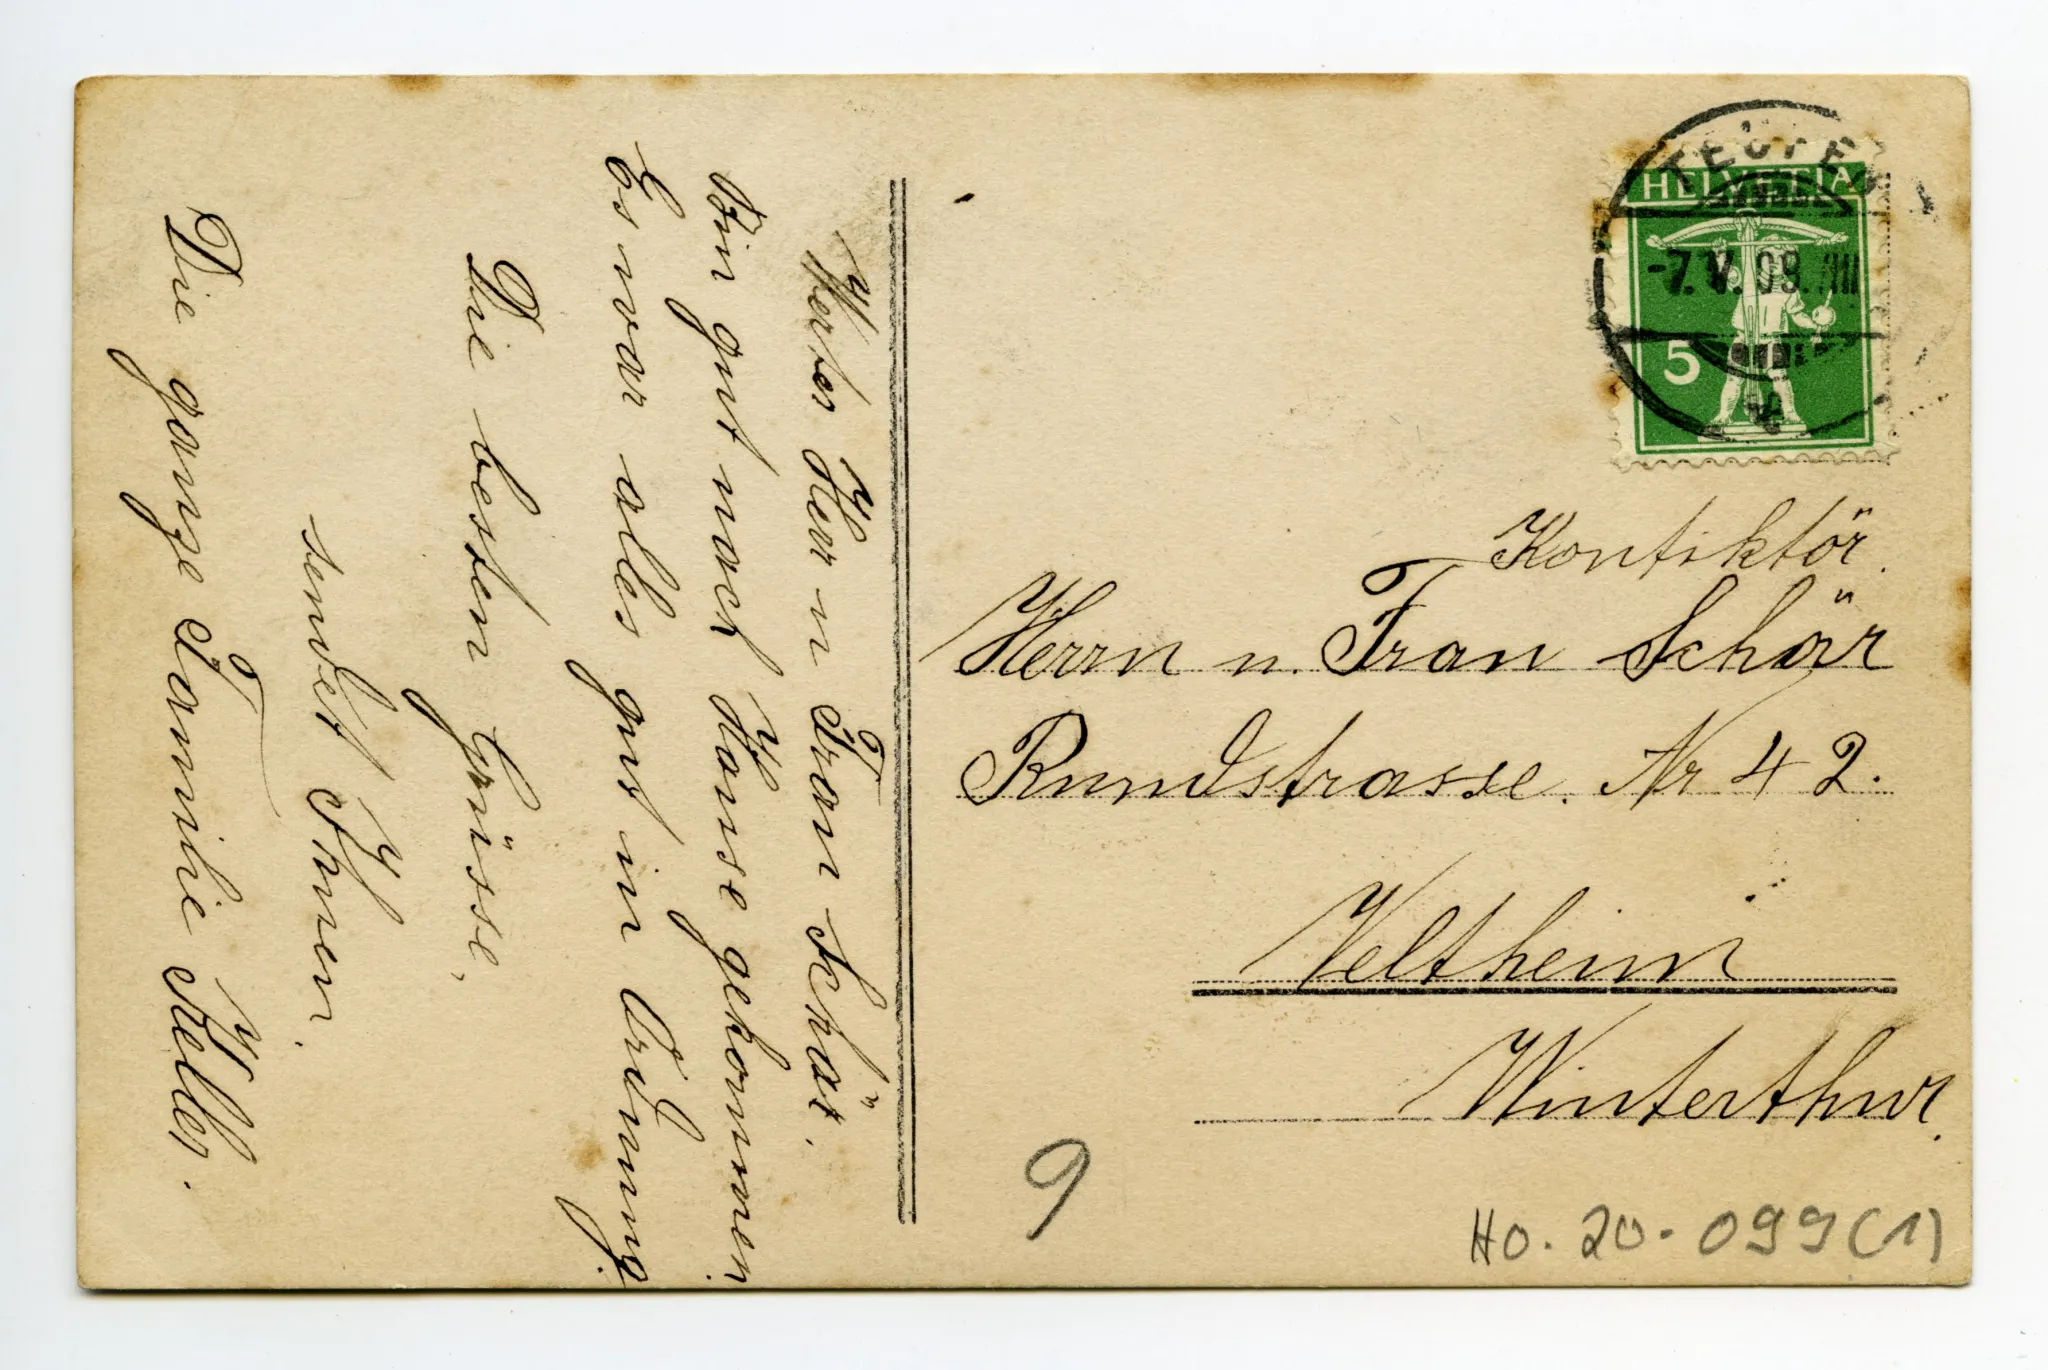 Wertes Herr u Frau Schär.
Bin gut nach Hause gekommen.
Es war alles gut in Ordnung.
Die besten Grüsse,
sendet Ihnen.
Die ganze Familie Keller.
TEUFEN
HELVETIA
-7.V.09.
5
Kontiktör.
Herrn u. Frau Schär
Rundstrasse. Nr 42.
Veltheim
Winterthur.
9
HO. 20. 099 (1)